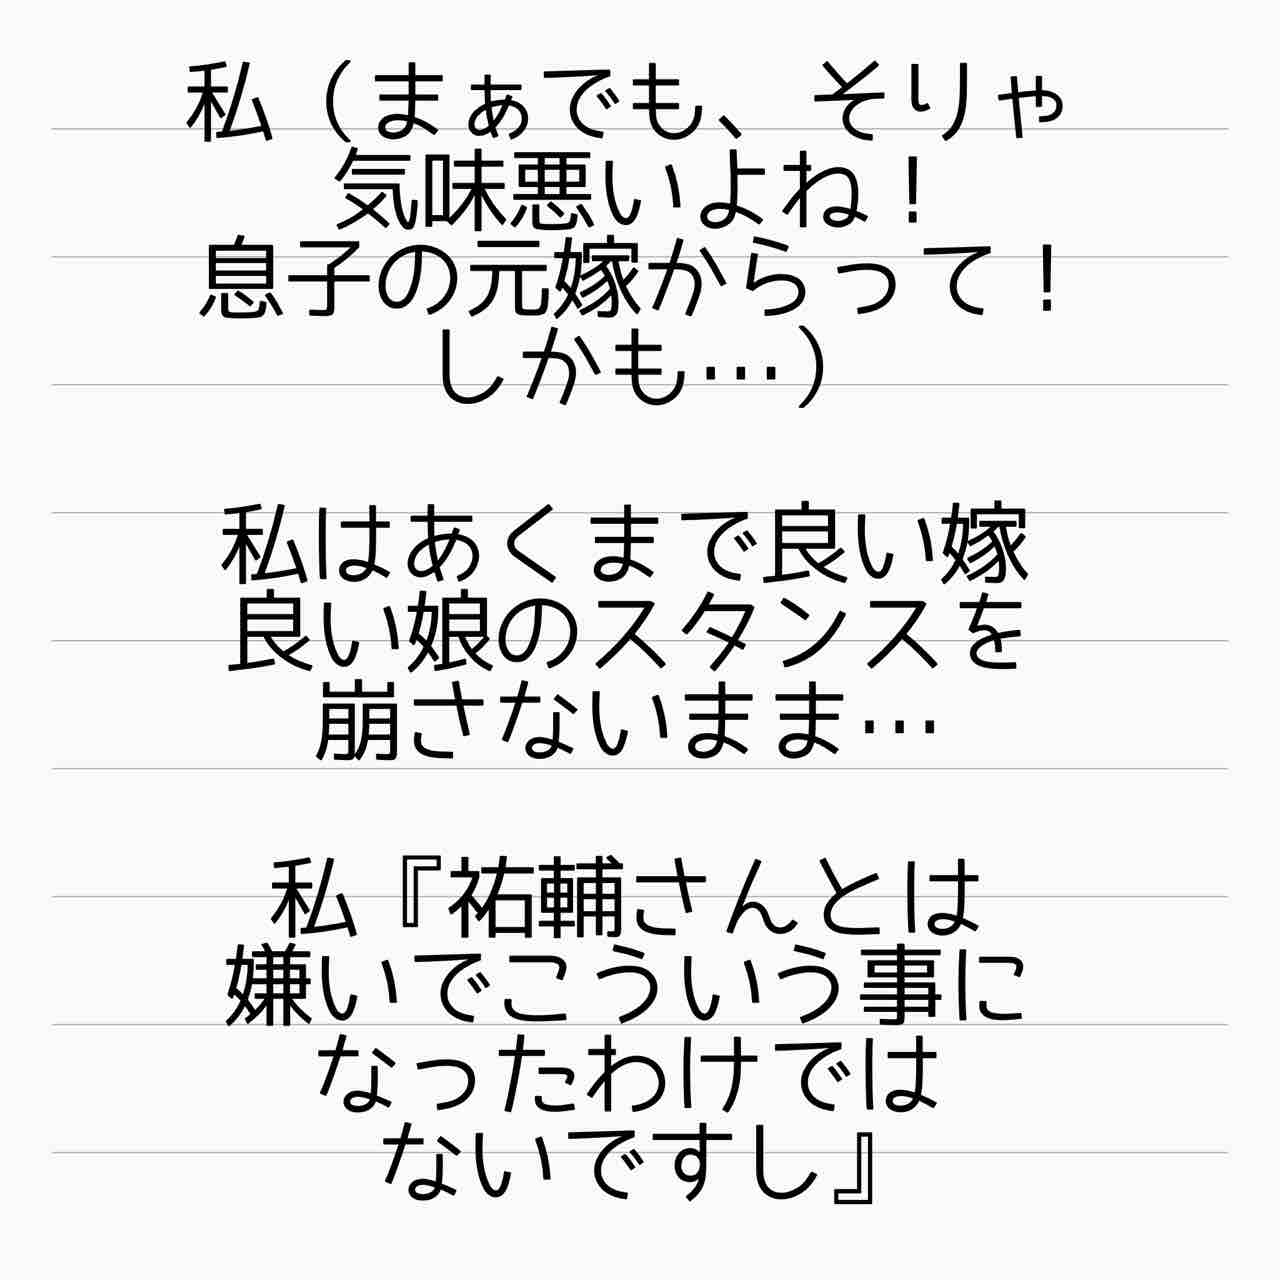 私（まぁでも、そりゃ
気味悪いよね！
息子の元嫁からって！
しかも…）
私はあくまで良い嫁
良い娘のスタンスを
崩さないまま…
私『祐輔さんとは
嫌いでこういう事に
なったわけでは
ないですし』